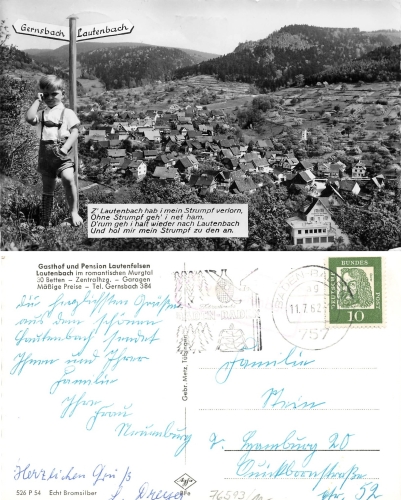 Gernsbach
Lautenbach
Z' Lautenbach hab i mein Strumpf verlorn,
Ohne Strumpf geh' i net ham.
D'rum geh i halt wieder nach Lautenbach
Und hol mir mein Strumpf zu den an.
Gasthof und Pension Lautenfelsen
Lautenbach im romantischen Murgtal
30 Betten - Zentralhzg. - Garagen
Mäßige Preise - Tel. Gernsbach 384
Die herzlichsten Grüße
aus dem schönen
Lautenbach sendet
Ihnen und Ihrer
Familie
Ihre
Frau
Herzlichen Gruß
526 P 54 Echt Bromsilber
Gebr. Metz, Tübingen
Agfa
11.7.62
757
DEUTSCHE BUNDESPOST
10
Familie
Stein
2 Hamburg 20
Quickbornstraße
Nr. 52